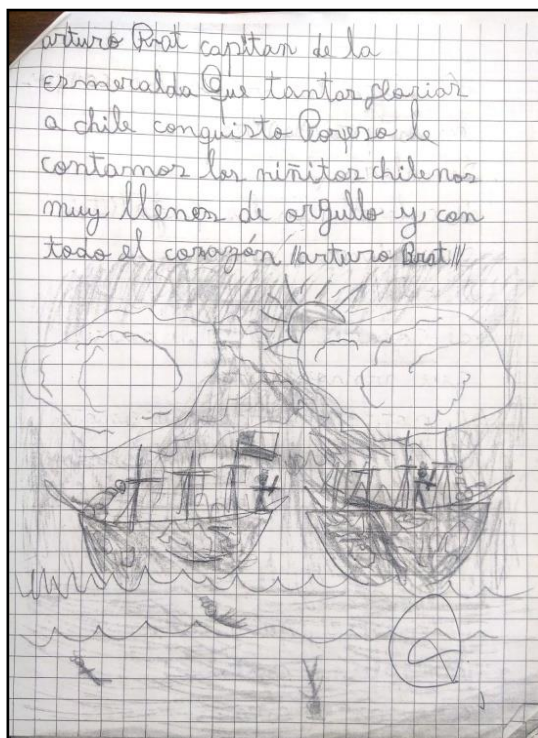 arturo Prat capitan de la
esmeralda Que tantas glorias
a chile conquisto Poreso le
contamos los niñitos chilenos
muy llenos de orgullo y con
todo el corazón ¡¡arturo Prat!!